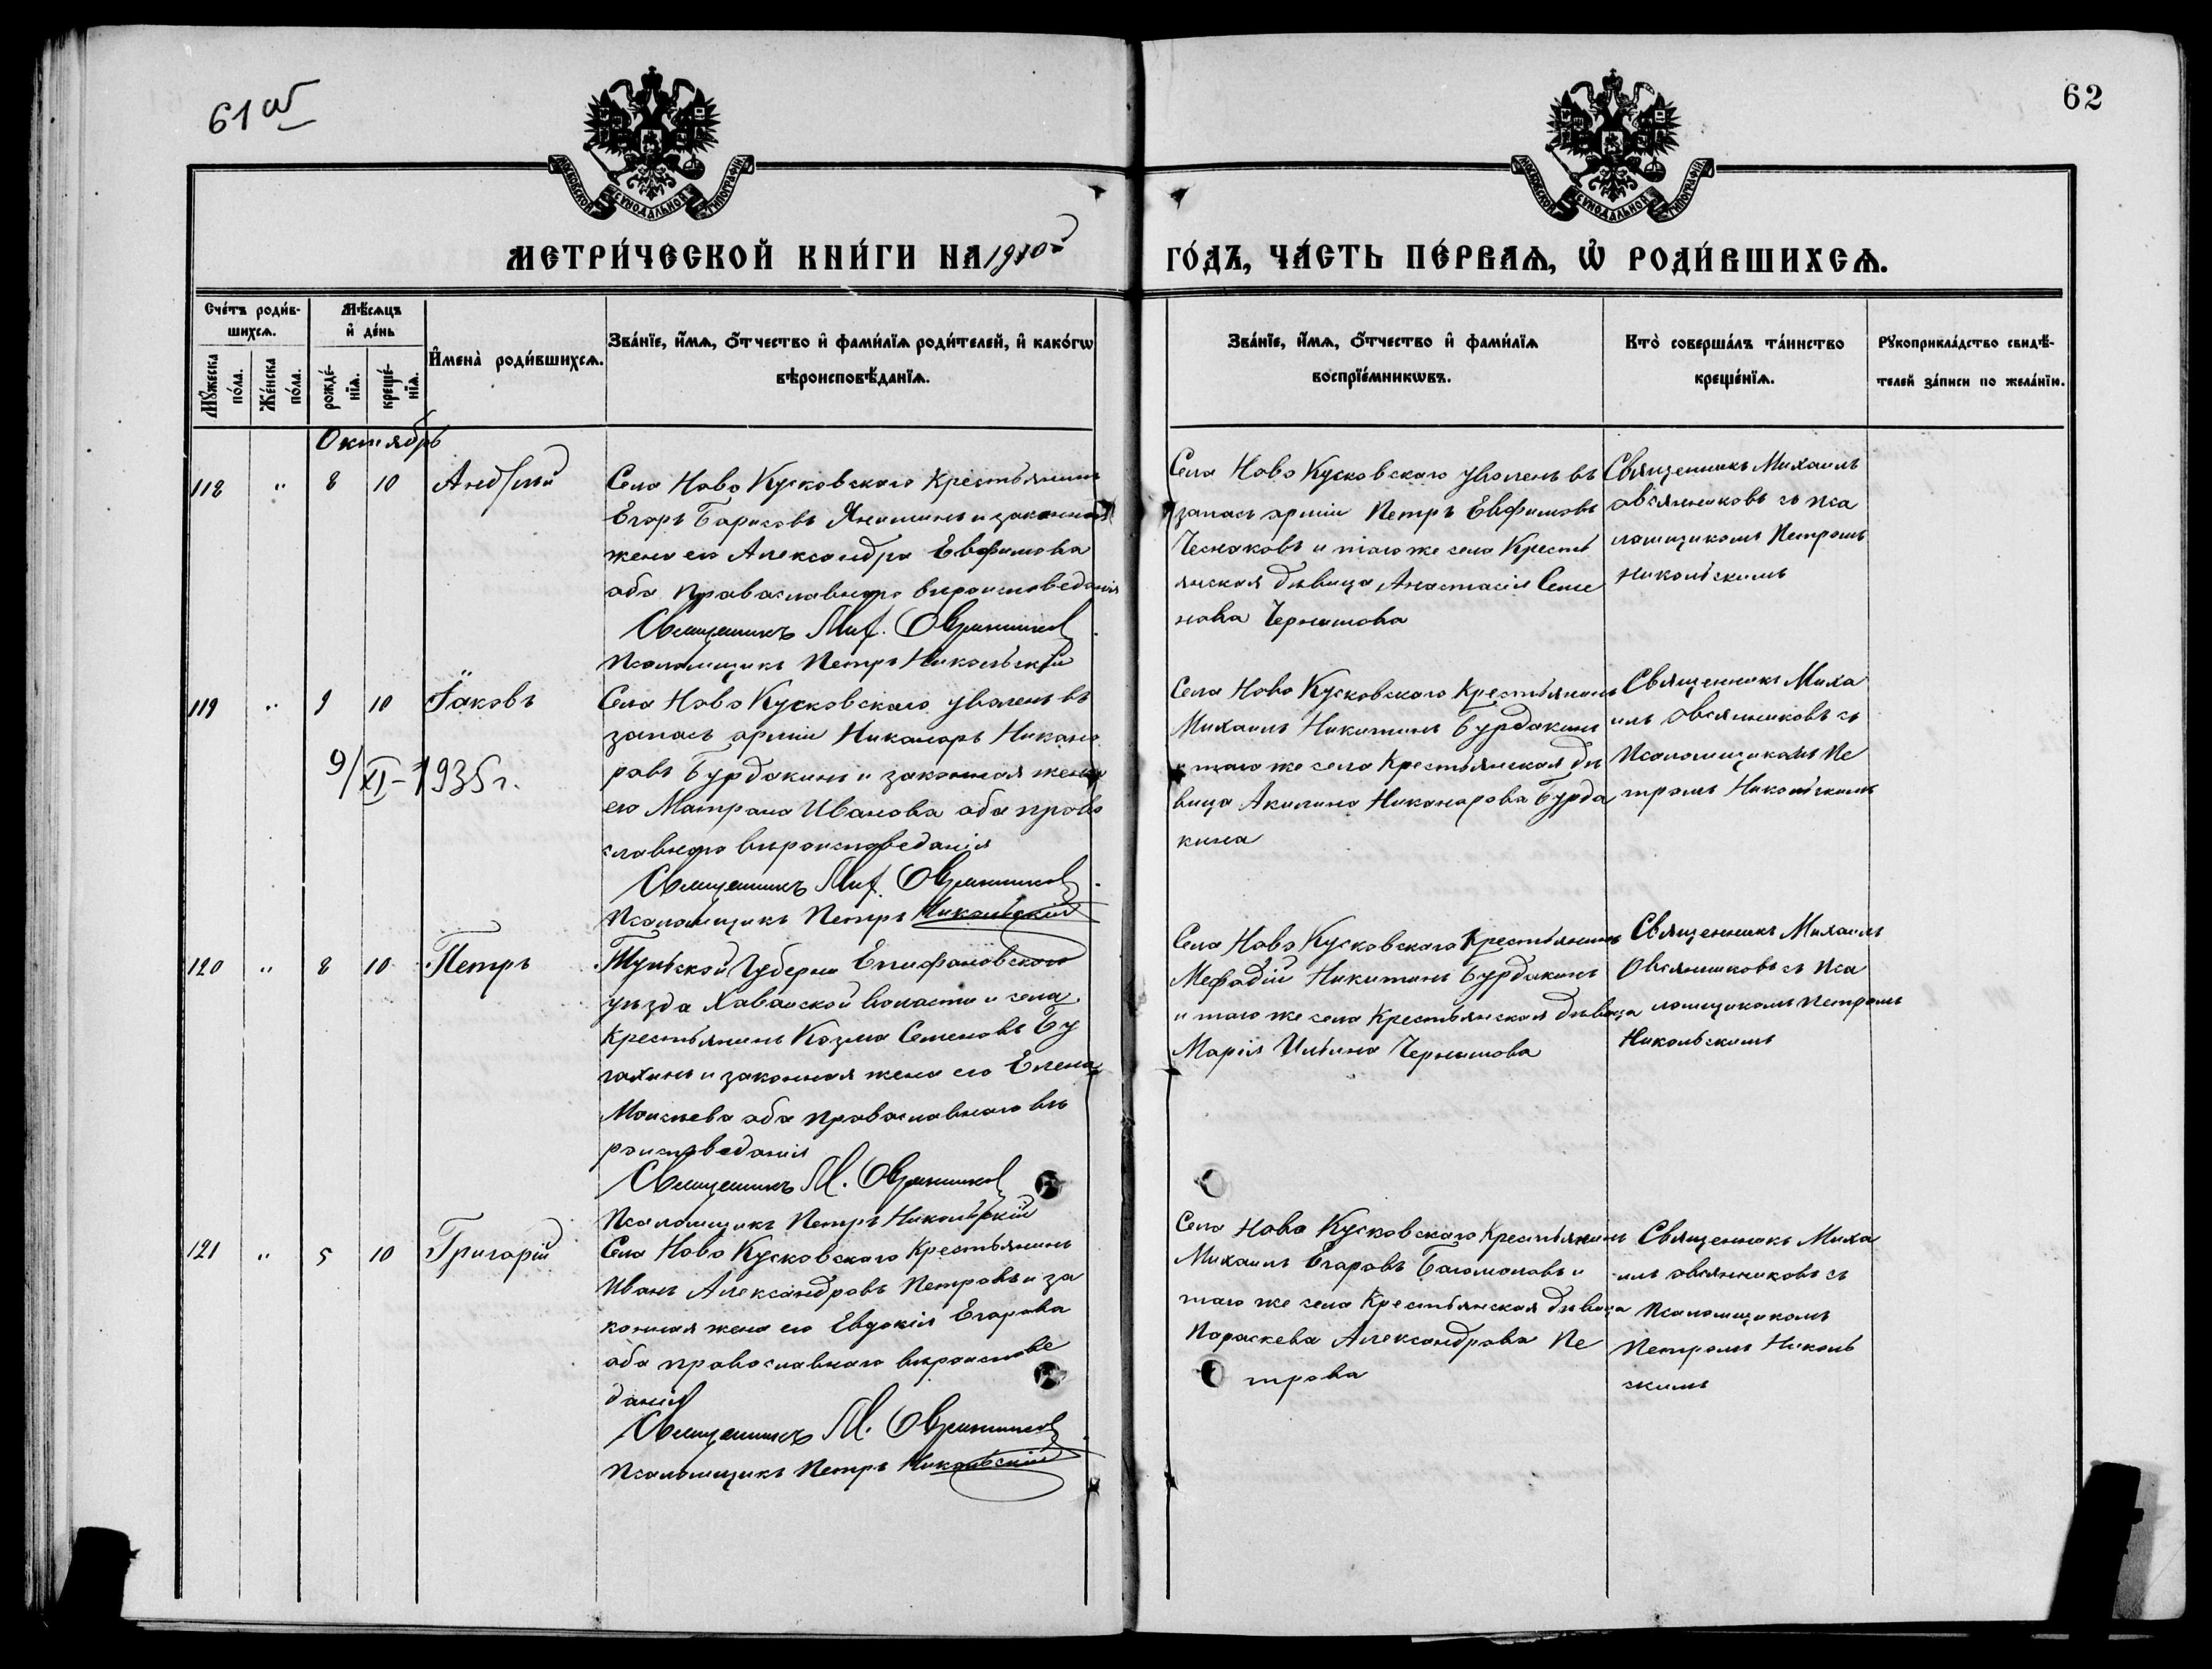 61 об
62
МОСКОВСКОЙ СѴНОДАЛЬНОЙ ТИПОГРАФІИ
МОСКОВСКОЙ СѴНОДАЛЬНОЙ ТИПОГРАФІИ
МЕТРИ́ЧЕСКОЙ КНИ́ГИ НА 1910й
ГО́ДЪ, ЧА́СТЬ ПЕ́РВАѦ, Ѿ РОДИ́ВШИХСѦ.
Сче́тъ роди́в-
шихсѧ.
Мꙋ́жеска по́ла.
Же́нска по́ла.
Мѣ́сѧцъ
и҆ де́нь
рожде́-
нїѧ.
креще́-
нїѧ.
И҆мена̀ роди́вшихсѧ.
Зва́нїе, и҆́мѧ, ѻ҆́тчество и҆ фами́лїѧ роди́телей, и҆ како́гѡ
вѣроисповѣ́данїѧ.
Зва́нїе, и҆́мѧ, ѻ҆́тчество и҆ фами́лїѧ
воспрїе́мникѡвъ.
Кто̀ соверша́лъ та́инство
креще́нїѧ.
Рꙋкоприкла́дство свидѣ́-
телей за́писи по жела́нїю.
Октябрь
118 " 8 10 Андрей
Села Ново Кусковскаго Крестьянинъ
Егоръ Барисовъ Янишинъ и законная
жена его Александра Евфимова
оба православнаго вѣроисповеданія
Священникъ Мих. Овсянников
Псаломщикъ Петръ Никольскій
Села Ново Кусковскаго уволенъ въ
запасъ арміи Петръ Евфимовъ
Чеснаковъ и того же села Кресть
янская дѣвица Анастасія Семе
нова Чернышова
Священникъ Михаилъ
Овсянниковъ съ пса
ломщикомъ Петромъ
Никольскимъ
119 " 9 10 Іаковъ
9/XI-1935 г.
Села Ново Кусковскаго уволенъ въ
запасъ арміи Никаноръ Никано
ровъ Бурдакинъ и законная жена
его Матрона Иванова оба право
славнаго вѣроисповеданія
Священникъ Мих. Овсянников
Псаломщикъ Петръ Никольскій
Села Ново Кусковскаго Крестьянинъ
Михаилъ Никитинъ Бурдакинъ
и того же села Крестьянская дѣ
вица Акилина Никанорова Бурда
кина
Священникъ Миха
илъ Овсянниковъ съ
Псаломщикомъ Пе
тромъ Никольскимъ
120 " 8 10 Петръ
Тульской Губерніи Епифановского
уѣзда Хаванской Волости и села
Крестьянинъ Козма Семеновъ Бу
гахинъ и законная жена его Елена
Моисеева оба православнаго вѣ
роисповеданія
Священникъ М. Овсянников
Псаломщикъ Петръ Никольскій
Села Ново Кусковскаго Крестьянинъ
Мефодій Никитинъ Бурдакинъ
и того же села Крестьянская дѣвица
Марія Ильина Чернышова
Священникъ Михаилъ
Овсянниковъ съ Пса
ломщикомъ Петромъ
Никольскимъ
121 " 5 10 Григорій
Села Ново Кусковскаго Крестьянинъ
Иванъ Александровъ Петровъ и за
конная жена его Евдокія Егарова
оба православнаго вѣроиспове
данія
Священникъ М. Овсянников
Псаломщикъ Петръ Никольскій
Села Ново Кусковскаго Крестьянинъ
Михаилъ Егаровъ Багомоловъ и
того же села Крестьянская дѣвица
Параскева Александрова Пе
трова
Священникъ Миха
илъ Овсянниковъ съ
Псаломщикомъ
Петромъ Николь
скимъ